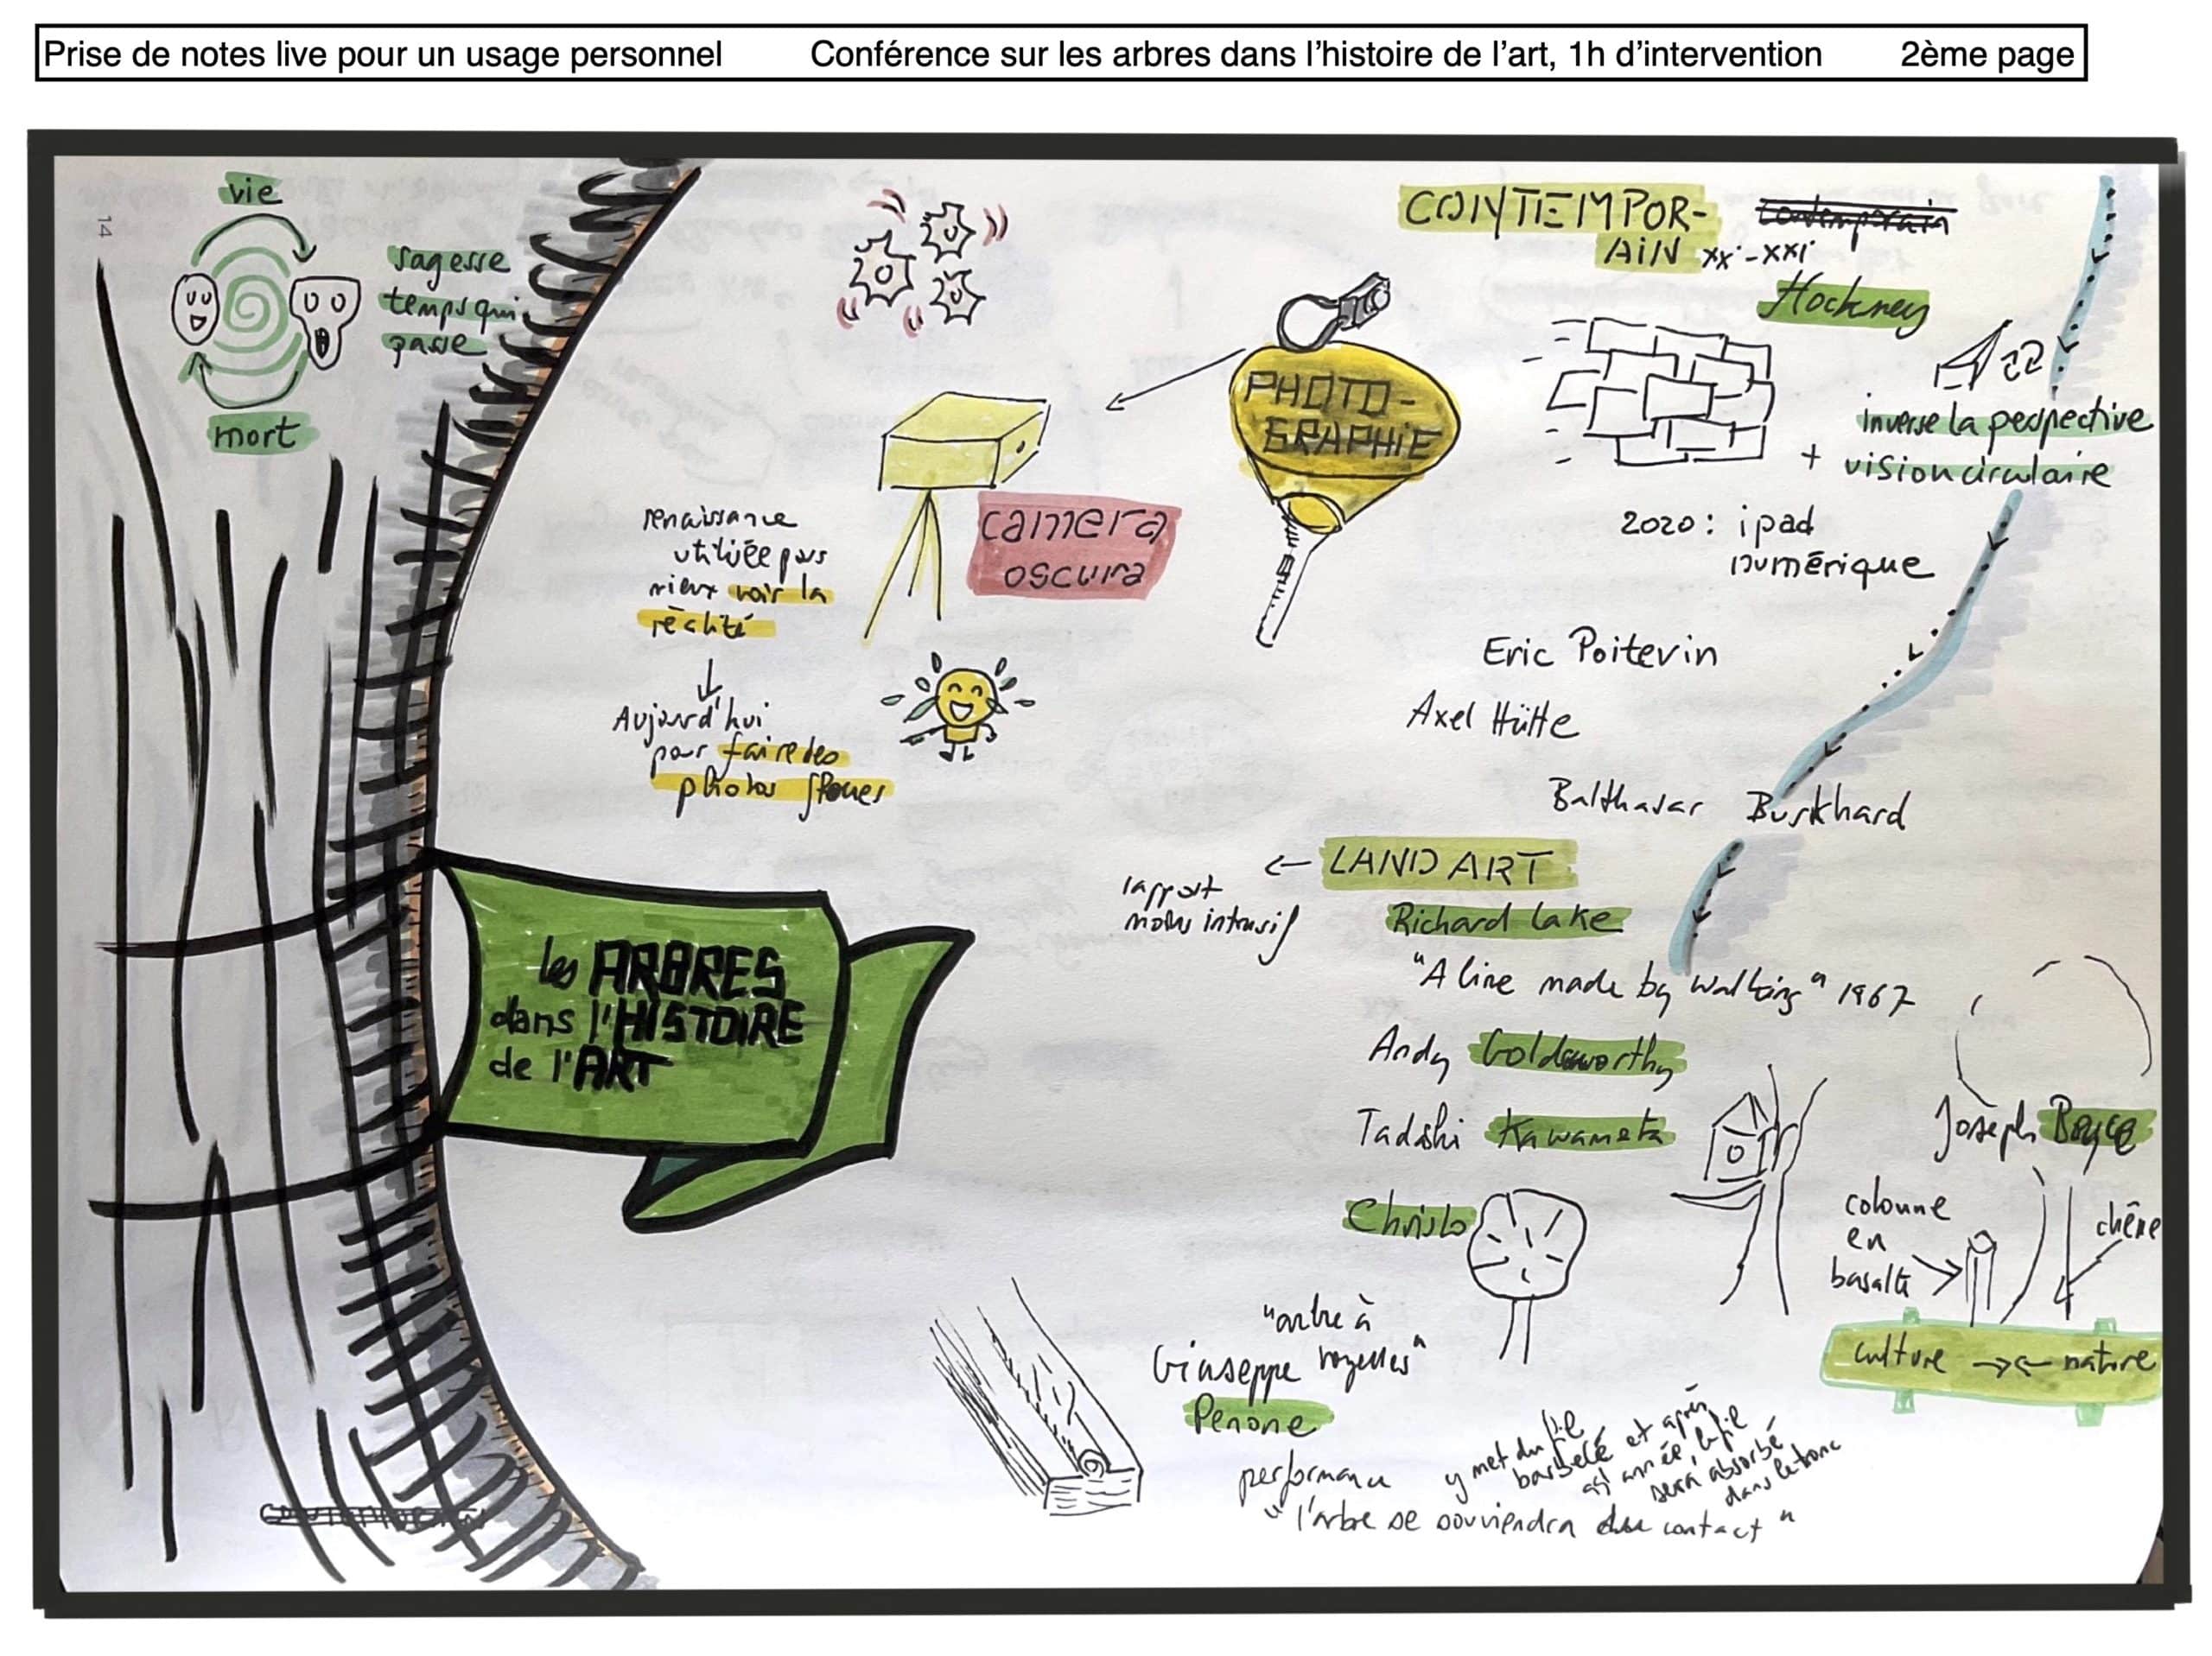 Prise de notes live pour un usage personnel Conférence sur les arbres dans l'histoire de l'art, 1h d'intervention 2ème page
14
vie
sagesse
temps qui
passe
mort
les ARBRES
dans l'HISTOIRE
de l'ART
PHOTO-
GRAPHIE
camera
oscura
renaissance
utilisée pour
mieux voir la
réalité
Aujourd'hui
pour faire des
photos floues
CONTEMPOR-
AIN XX-XXI
contemporain
Hockney
inverse la pespective
+ vision circulaire
2020 : ipad
numérique
Eric Poitevin
Axel Hütte
Balthasar Burkhard
← LAND ART
rapport
moins intrusif
Richard Lake
"A line made by walking" 1967
Andy Goldsworthy
Tadashi Kawameta
Christo
Joseph Boyce
colonne
en
basalte
chêne
culture →← nature
"arbre à
voyelles"
Giuseppe
Penone
performance
y met du fil
barbelé et après
année, le fil
sera absorbé
dans le tronc
"l'arbre se souviendra du contact"